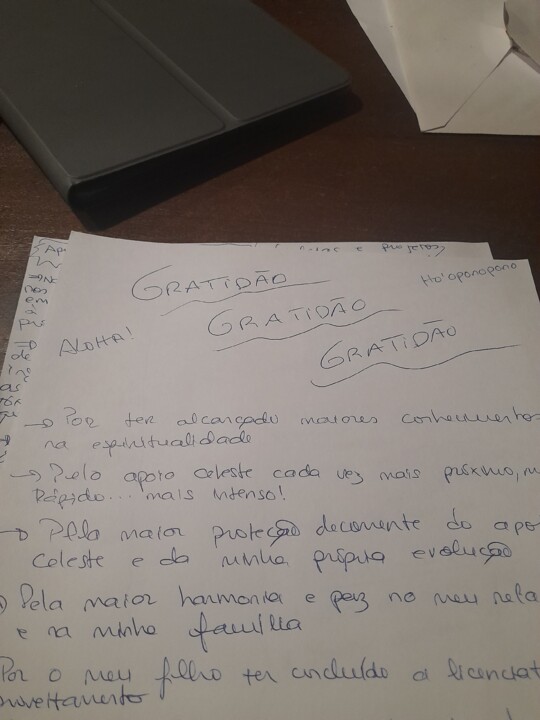 e projetos
Ho'oponopono
GRATIDÃO
GRATIDÃO
GRATIDÃO
ALOHA!
→ Por ter alcançado maiores conhecimentos
na espiritualidade
→ Pelo apoio celeste cada vez mais próximo, m
Rápido... mais intenso!
→ Pela maior proteção decorrente do apo
celeste e da minha própria evolução
Pela maior harmonia e paz no meu rela
e na minha família
Por o meu filho ter concluído a licenciat